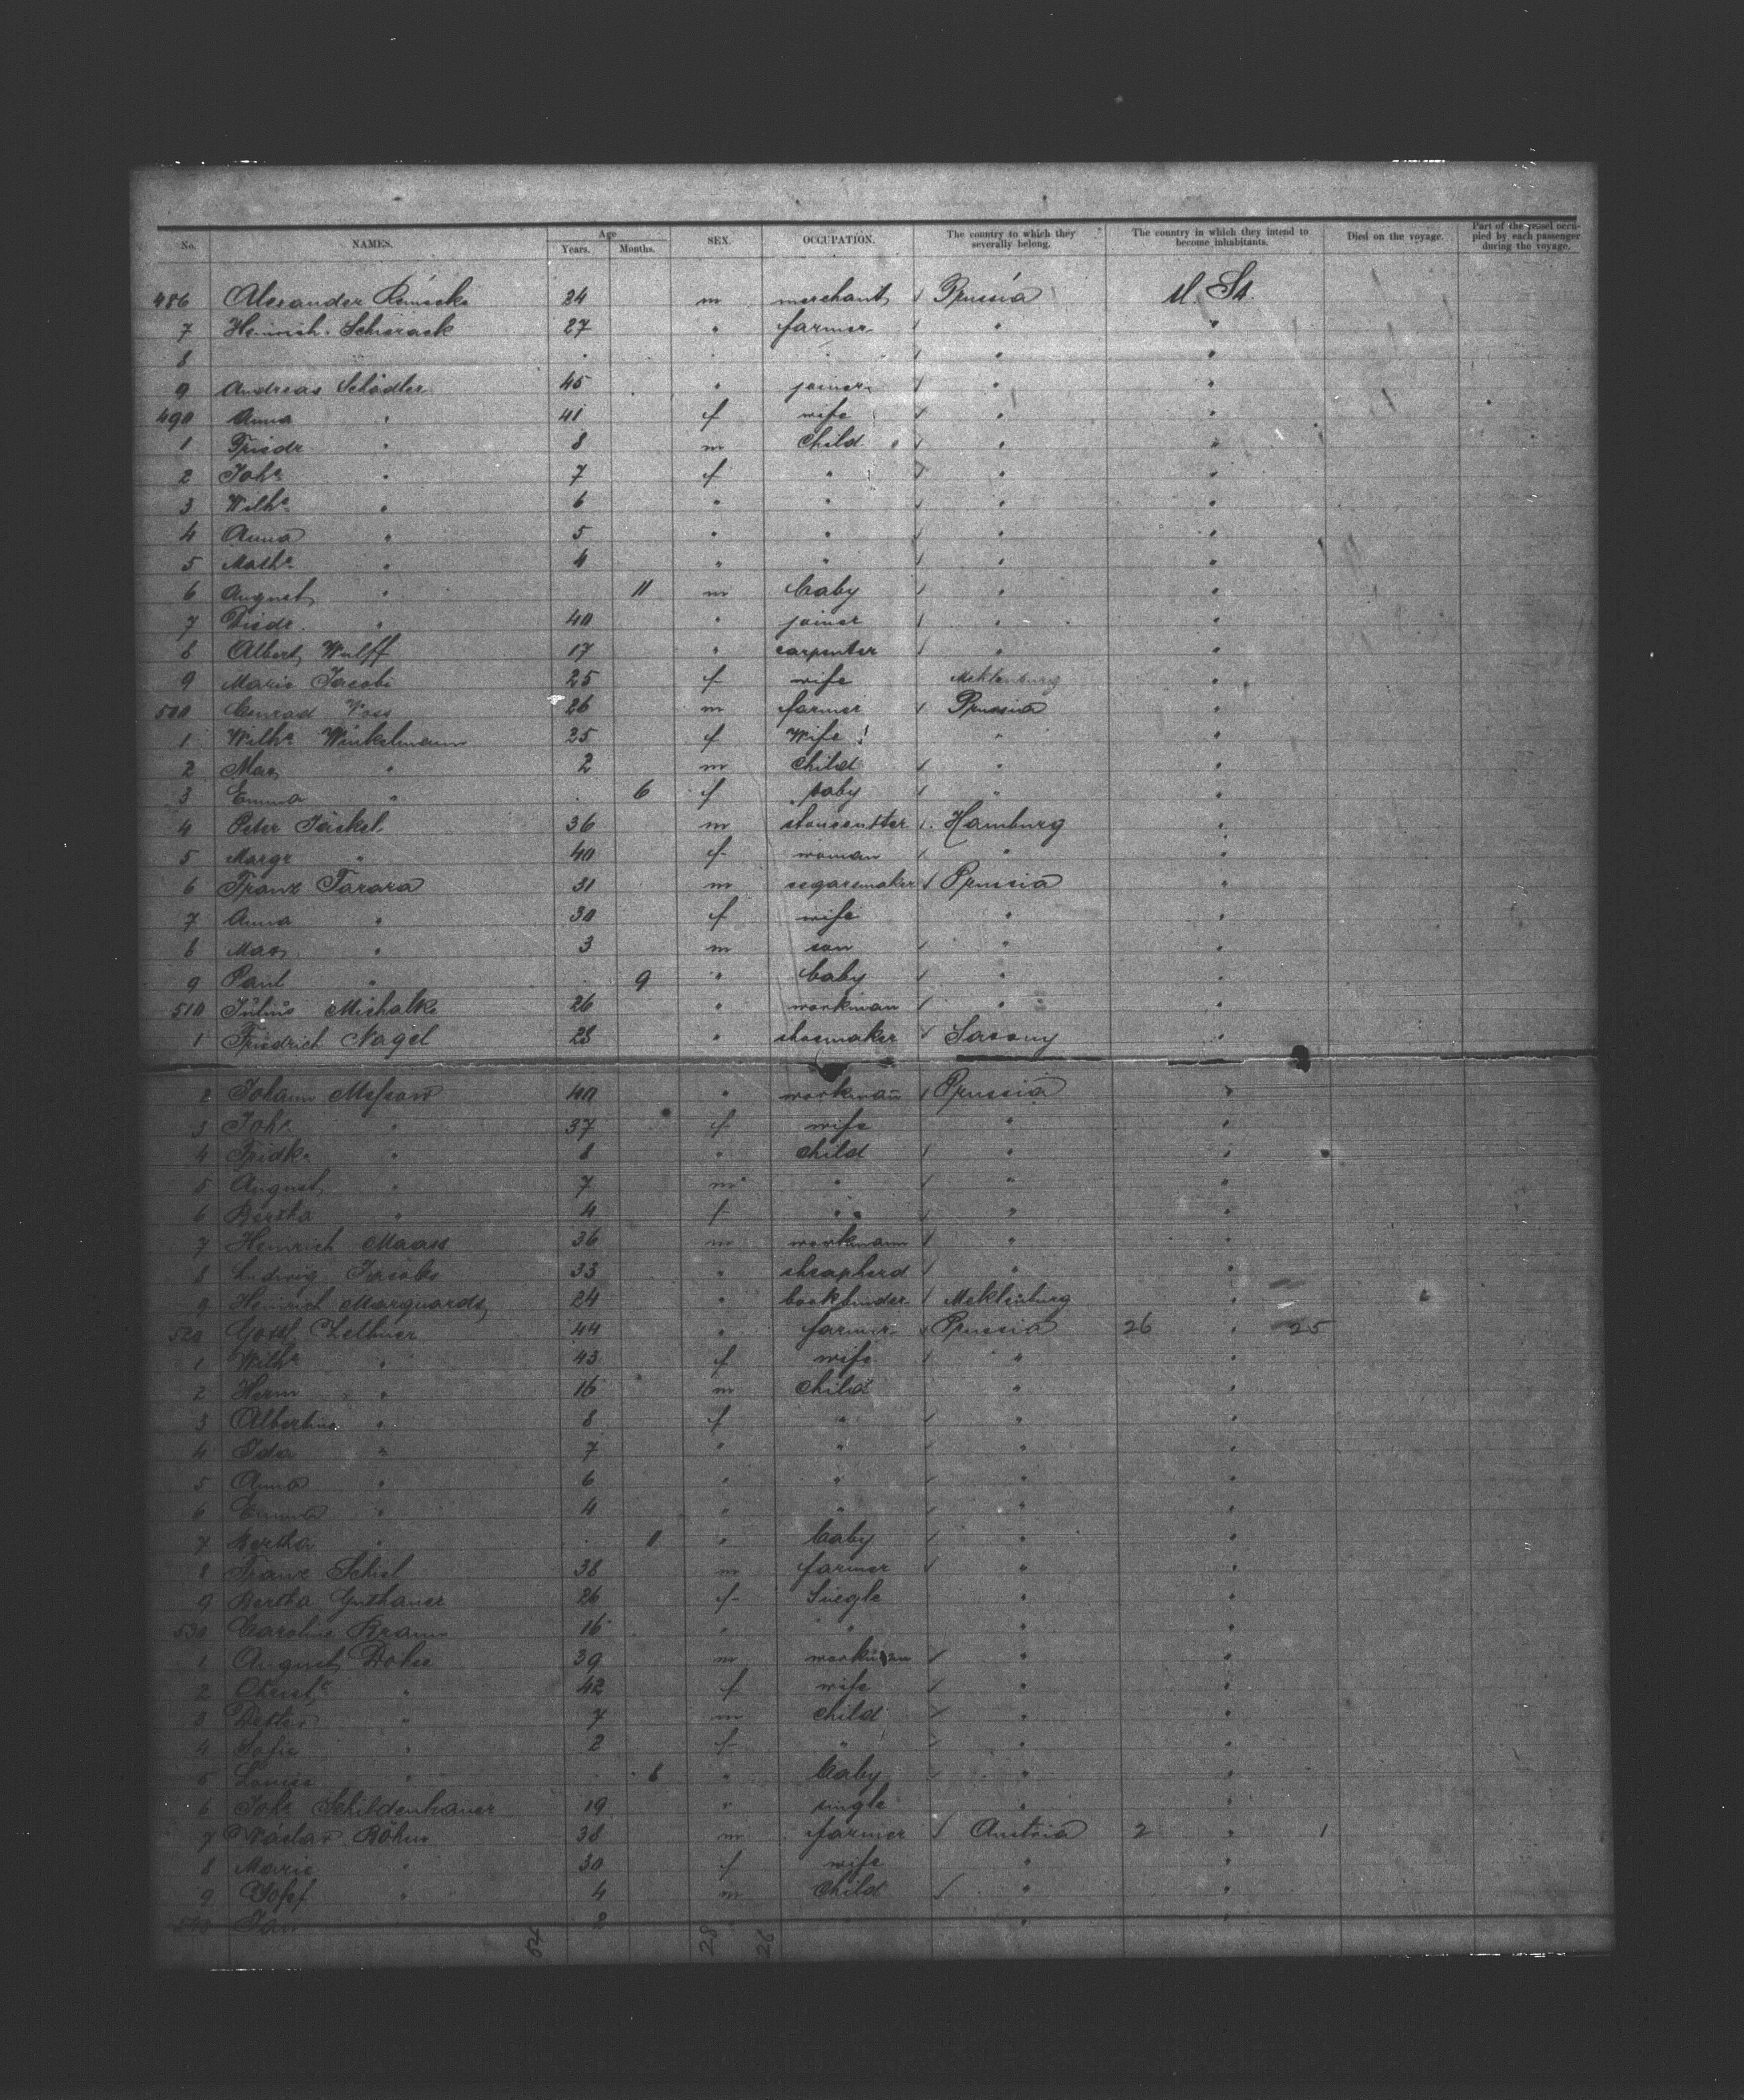 No. NAMES. Age Years. Months. SEX. OCCUPATION. The country to which they severally belong. The country in which they intend to become inhabitants. Died on the voyage. Part of the vessel occupied by each passenger during the voyage.
486 Alexander 24 m merchant Prussia U. Sts.
7 Heinrich Schierack 27 " farmer " "
8 " "
9 Andreas Schädler 45 " joiner " "
490 Anna " 41 f wife " "
1 Friedr " 8 m child " "
2 Johe " 7 f " " "
3 Wilhe " 6 " " " "
4 Anna " 5 " " " "
5 Mathe " 4 " " " "
6 August " 11 m baby " "
7 Diedr. " 40 " joiner " "
8 Albert Wulff 17 " carpenter " "
9 Marie Jacobi 25 f wife Meklenburg "
500 Conrad Voss 26 m farmer Prussia "
1 Wilhe Winkelmann 25 f wife " "
2 Max " 2 m child " "
3 Emma " 6 f baby " "
4 Peter Jäckel 36 m stonecutter Hamburg "
5 Margr " 40 f woman " "
6 Franz Tarara 31 m segaremaker Prussia "
7 Anna " 30 f wife " "
8 Max " 3 m son " "
9 Paul " 9 " baby " "
510 Julius Michalke 26 " workman " "
1 Friedrich Nagel 28 " shoemaker Saxony "
2 Johann Massow 40 " workman Prussia "
3 Johe " 37 f wife " "
4 Fridke " 8 " child " "
5 August " 7 m " " "
6 Bertha " 4 f " " "
7 Heinrich Maass 36 m workmann " "
8 Ludwig Jacobs 33 " sheapherd " "
9 Heinrich Marquardt 24 " bookbinder Meklenburg "
520 Gottl Zellmer 44 " farmer Prussia 26 " 25
1 Wilhe " 43 f wife " "
2 Herm " 16 m child " "
3 Albertine " 8 f " " "
4 Ida " 7 " " " "
5 Anna " 6 " " " "
6 Emma " 4 " " " "
7 Bertha " 11 " baby " "
8 Franz Schiel 38 m farmer " "
9 Bertha 26 f Siegle " "
530 Caroline 16 " " " "
1 August 39 m workman " "
2 Christe " 42 f wife " "
3 " 7 m child " "
4 Sofie " 2 f " " "
5 Louise " 6 " baby " "
6 Johe Schildenhauer 19 " single " "
7 Václav Böhm 38 m farmer Austria 2 " 1
8 Marie " 30 f wife " "
9 Josef " 4 m child " "
540 Jan 2 " "
54 28 26